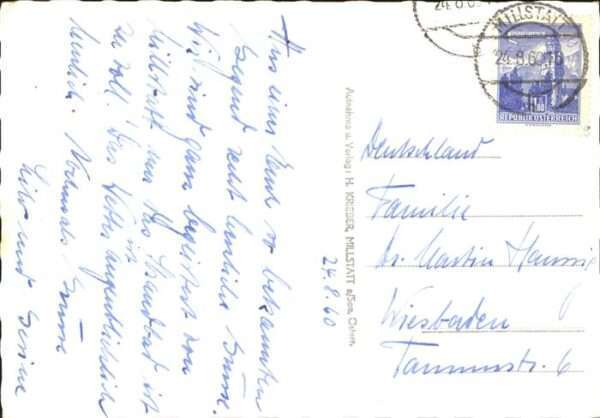 Aus einer Euch so bekannten
Gegend recht herzliche Grüsse.
Wir sind ganz begeistert von
Millstatt und das Strandbad ist
zu toll! Das Wetter ist augenblicklich
herrlich. Nochmals Grüsse
und
24.8.60
Aufnahme u. Verlag: H. KREBER, MILLSTATT a/See,
Deutschland
Familie
Dr. Martin
Wiesbaden
Taunusstr. 6
MILLSTATT
24.8.60
REPUBLIK ÖSTERREICH